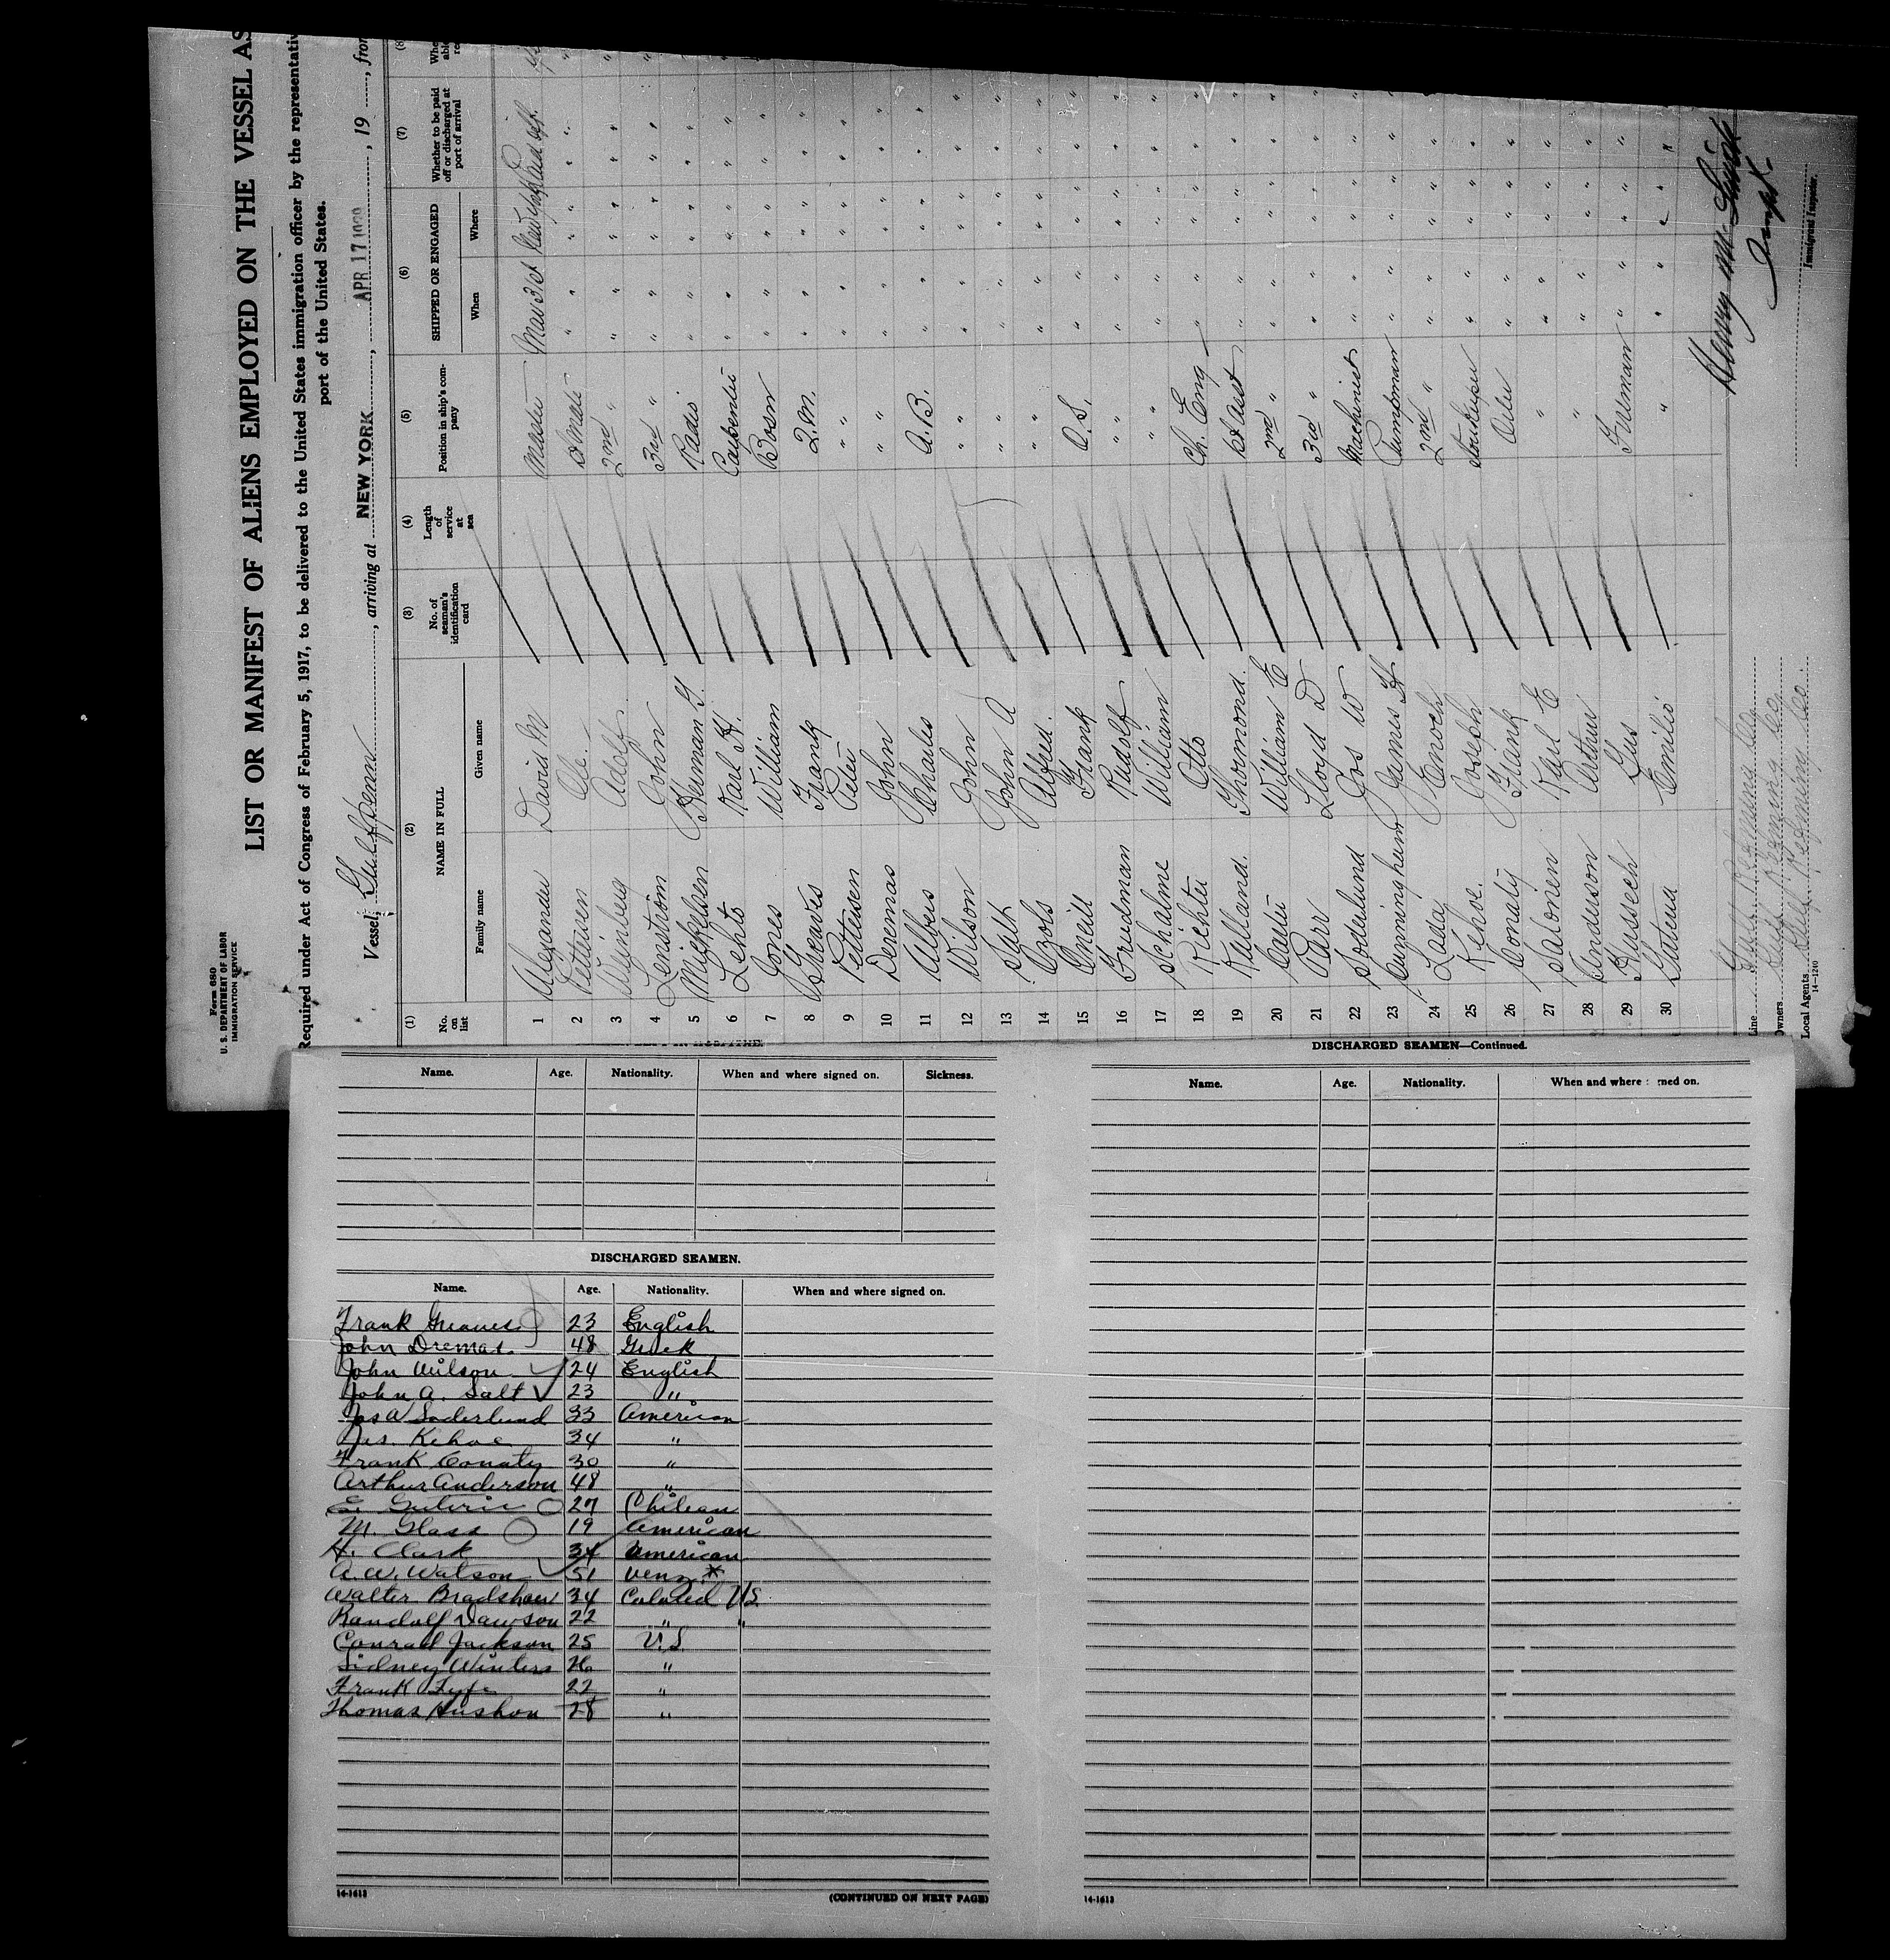 Form 680
U. S. DEPARTMENT OF LABOR
IMMIGRATION SERVICE
LIST OR MANIFEST OF ALIENS EMPLOYED ON THE VESSEL AS
Required under Act of Congress of February 5, 1917, to be delivered to the United States immigration officer by the representativ
port of the United States.
Vessel Gulfpenn, arriving at NEW YORK, APR 17, 19, from
(1) (2) (3) (4) (5) (6) (7) (8)
No. on list NAME IN FULL No. of seaman's identification card Length of service at sea Position in ship's company SHIPPED OR ENGAGED Whether to be paid off or discharged at port of arrival Whe
Family name Given name When Where
1 Alexander David M Master Mar 31st New York Paid off
2 Petersen Ole " " "
3 Weinberg Adolf 2nd " " " "
4 Lenström John 3rd " " " "
5 Mickelsen Herman G. Radio " " "
6 Lehto Karl H. Carpenter " " "
7 Jones William Bosn " " "
8 Greaves Frank Q.M. " " "
9 Pettersen Peter " " " " "
10 Deremas John " " " "
11 Albers Charles A.B. " " "
12 Wilson John " " " "
13 Salt John A " " " "
14 Ozols Alfred " " " "
15 Oneill Frank O.S. " " "
16 Friedman Rudolf " " " " "
17 Schalme William " " " " "
18 Richter Otto Ch. Eng " " "
19 Kelland Thormond 1st Asst " " "
20 Carter William E 2nd " " " "
21 Parr Lloyd D 3rd " " " "
22 Soderlund Jos W Machinist " " "
23 Cunningham James H Pumpman " " "
24 Loda Enoch 2nd " " " "
25 Kehoe Joseph Storekeeper " " "
26 Conaty Frank Oiler " " "
27 Salonen Karl E " " " "
28 Anderson Arthur " " " "
29 Gussech Gus Fireman " " "
30 Emilio " " " "
Line Gulf Refining Co.
Owners Gulf Refining Co.
Local Agents Gulf Refining Co.
14-1240
Immigrant Inspector.
Name. Age. Nationality. When and where signed on. Sickness.
DISCHARGED SEAMEN.
Name. Age. Nationality. When and where signed on.
Frank Greaves 23 English
John Dremas 48 Greek
John Wilson 24 English
John A. Salt 23 "
Jos W Soderlund 33 American
Jas. Kehoe 34 "
Frank Conaty 30 "
Arthur Anderson 48 "
E. Guterie 27 Chilean
M. Glass 19 American
H. Clark 34 American
A. W. Watson 51 Venz. *
Walter Bradshaw 34 Colored U.S.
Randolf Dawson 22 " "
Conrad Jackson 25 U.S.
Sidney Winters 26 "
Frank Fyfe 22 "
Thomas Hushon 28 "
14-1613
(CONTINUED ON NEXT PAGE)
DISCHARGED SEAMEN—Continued.
Name. Age. Nationality. When and where ned on.
14-1613